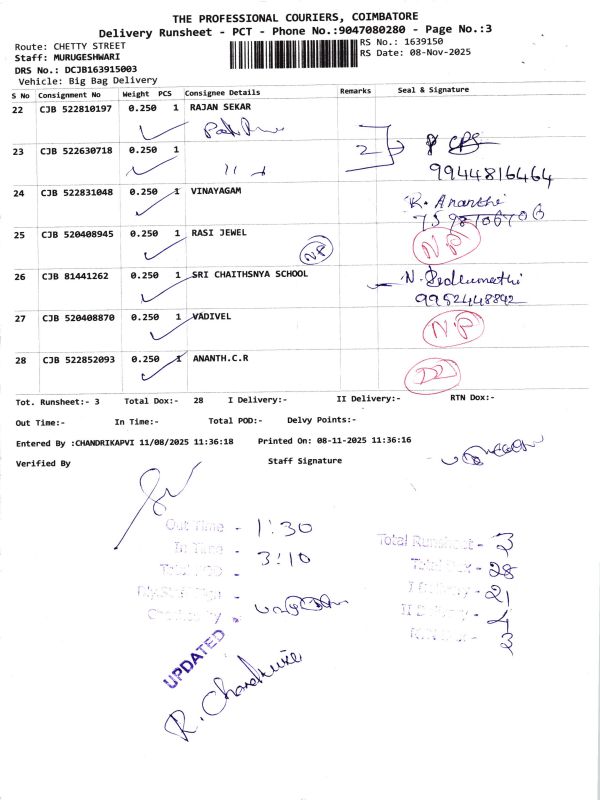 THE PROFESSIONAL COURIERS, COIMBATORE
Delivery Runsheet - PCT - Phone No.:9047080280 - Page No.:3
Route: CHETTY STREET
RS No.: 1639150
Staff: MURUGESHWARI
RS Date: 08-Nov-2025
DRS No.: DCJB163915003
Vehicle: Big Bag Delivery
S No Consignment No Weight PCS Consignee Details Remarks Seal & Signature
22 CJB 522810197 0.250 1 RAJAN SEKAR
23 CJB 522630718 0.250 1
2
9944816464
24 CJB 522831048 0.250 1 VINAYAGAM
R. Ananthi
25 CJB 520408945 0.250 1 RASI JEWEL
NP NP
26 CJB 81441262 0.250 1 SRI CHAITHSNYA SCHOOL
9952448842
27 CJB 520408870 0.250 1 VADIVEL
NP
28 CJB 522852093 0.250 1 ANANTH.C.R
Tot. Runsheet:- 3 Total Dox:- 28 I Delivery:- II Delivery:- RTN Dox:-
Out Time:- In Time:- Total POD:- Delvy Points:-
Entered By :CHANDRIKAPVI 11/08/2025 11:36:18 Printed On: 08-11-2025 11:36:16
Verified By Staff Signature
Out Time - 1:30
In Time - 3:10
Total POD -
Total Runsheet - 3
Total Dox - 28
I Delivery - 21
II Delivery - 4
RTN Dox - 3
UPDATED